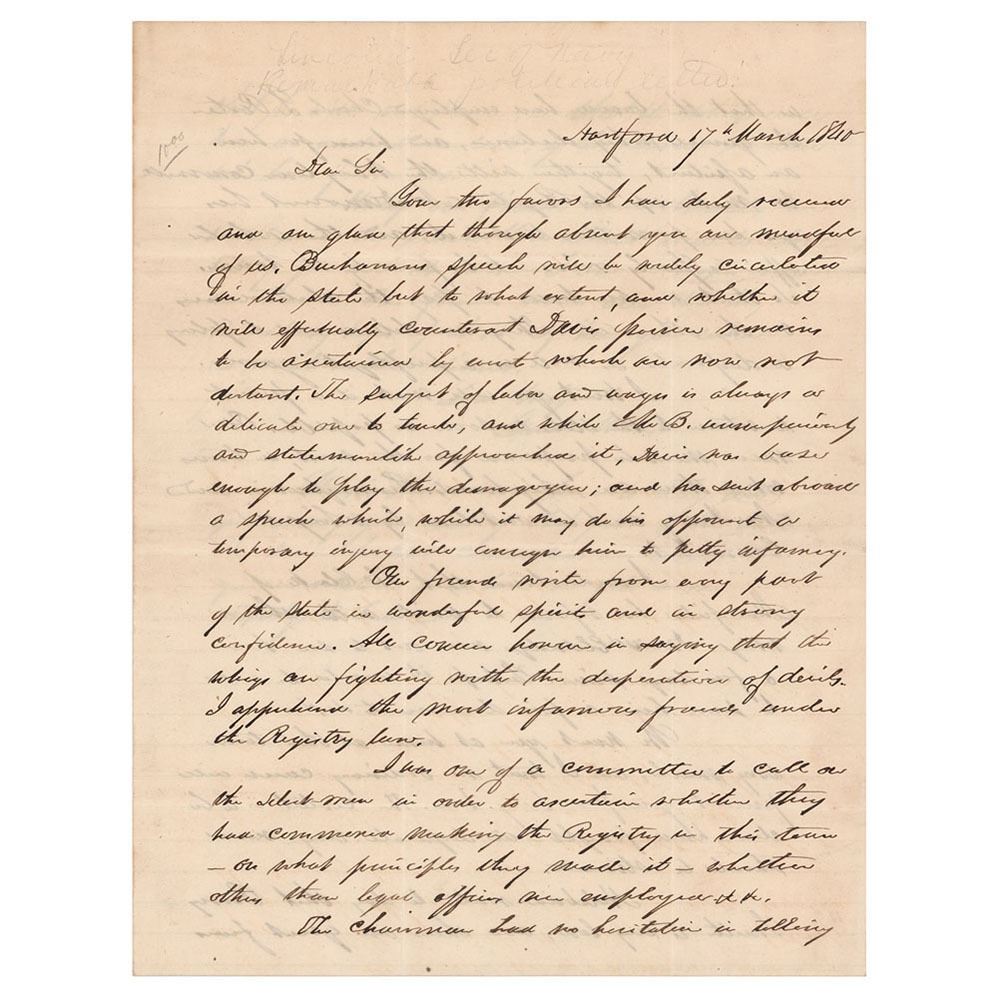 Lincoln's Sec of Navy
Remarkable political letter!
1000
Hartford 17th March 1840
Dear Sir
Your two favors I have duly received
and am glad that though absent you are mindful
of us. Buchanans speech will be widely circulated
in the state but to what extent, and whether it
will effectually counteract Davis' poison remains
to be ascertained by events which are now not
distant. The subject of labor and wages is always a
delicate one to touch, and while Mr B.
and statesmanlike approached it, Davis was base
enough to play the demagogue; and has sent abroad
a speech which, while it may do his opponent a
temporary injury will consign him to petty infamy.
Our friends write from every part
of the state in wonderful spirits and in strong
confidence. All concur however in saying that the
whigs are fighting with the desperation of devils.
I apprehend the most infamous frauds under
the Registry law.
I was one of a committee to call on
the select-men in order to ascertain whether they
had commenced making the Registry in this town
– on what principles they made it – whether
others than legal officers were employed &c &c.
The Chairman had no hesitation in telling